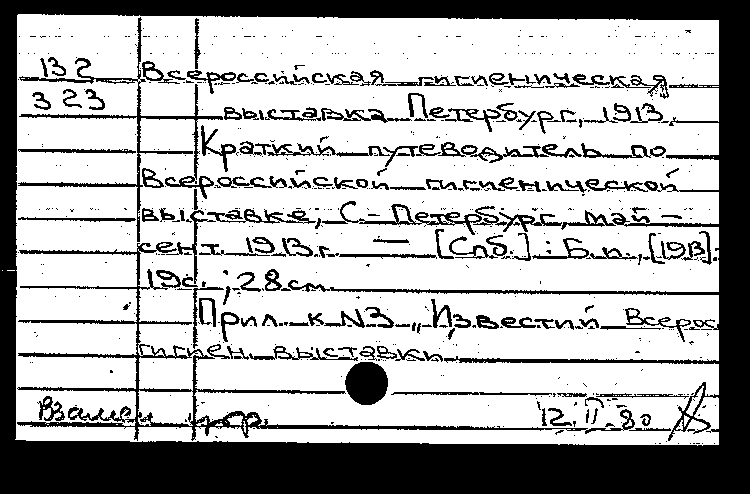 132 Всероссийская гигиеническая
323 выставка Петербург, 1913.
Краткий путеводитель по
Всероссийской гигиенической
выставке, С.-Петербург, май –
сент. 1913 г. — [Спб.] : Б.и., [1913].
19 с. ; 28 см.
Прил. к N3 „Известий Всерос
гигиен. выставки.
Взамен утр. 12.II.80